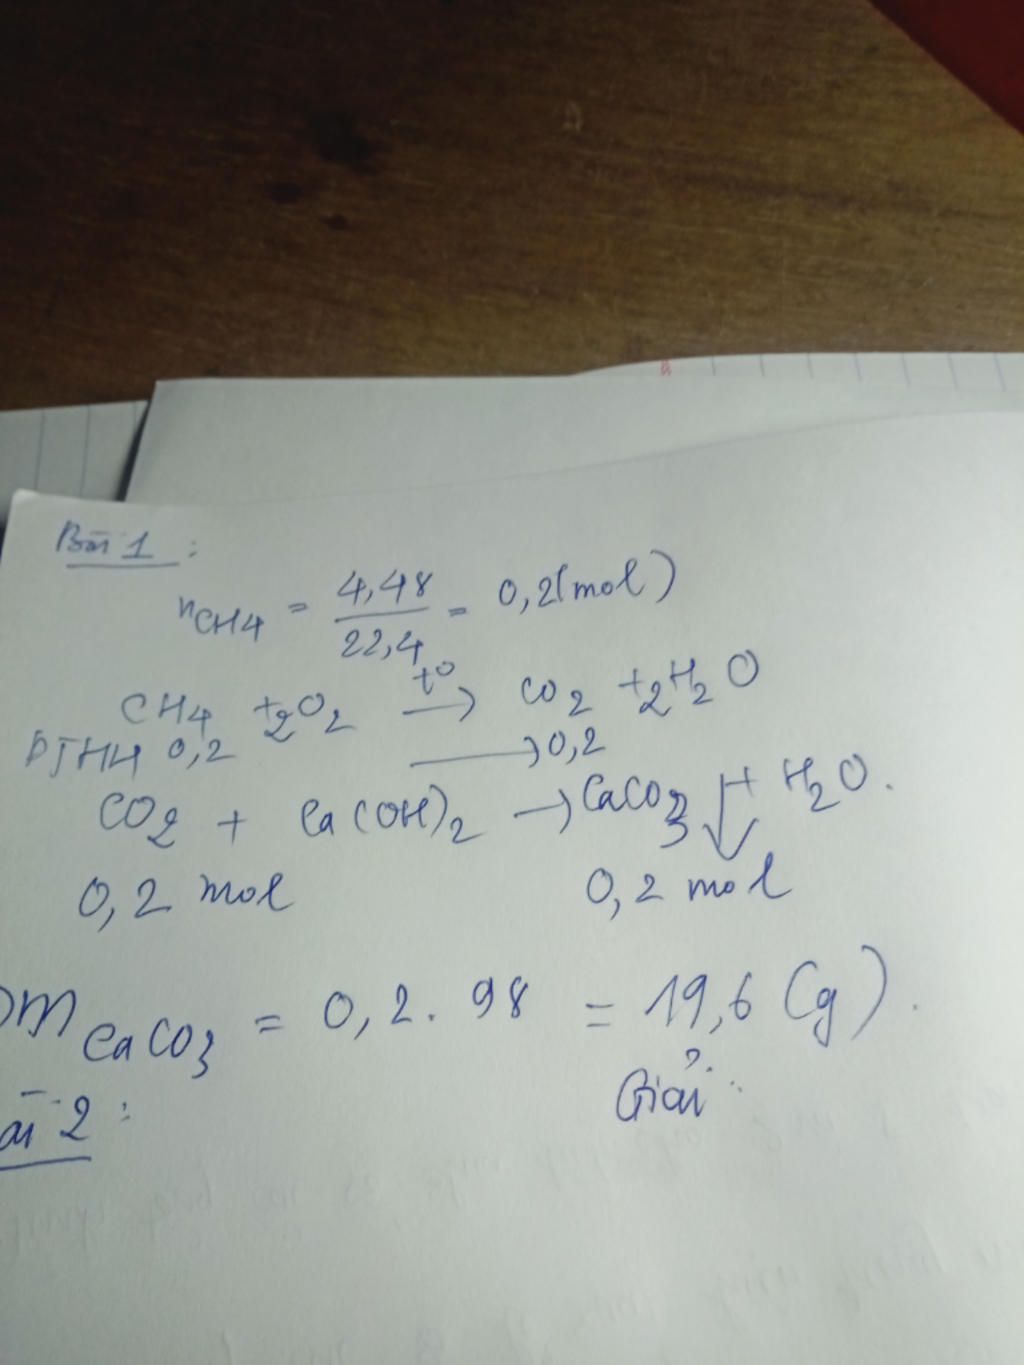 Bài 1 :
nCH4 = 4,48 / 22,4 = 0,2 (mol)
CH4 + 2O2 t° → CO2 + 2H2O
PTHH 0,2 → 0,2
CO2 + Ca(OH)2 → CaCO3 ↓ + H2O.
0,2 mol 0,2 mol
mCaCO3 = 0,2 . 98 = 19,6 (g).
ài 2 : Giải :